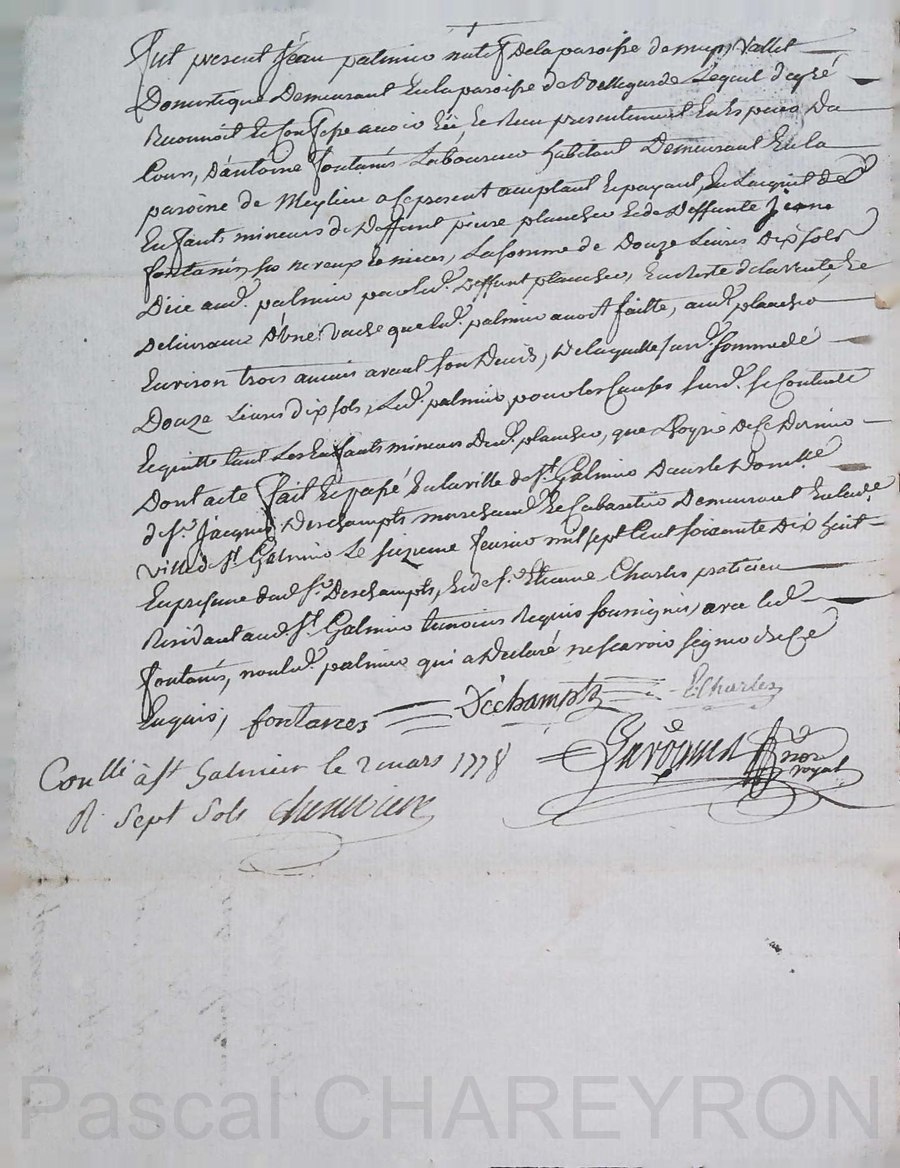 fut present Jean palmier natif de la paroisse de          Vallet
Domestique Demeurant En la paroisse de Bellegarde Lequel de gré
Reconnoit Et Confesse avoir Eü, Et Reçu presentement En Espèces Du
Cours, D'antoine fontanés Laboureur habitant Demeurant En la
paroisse de Meylieu a Ce present acceptant Et payant En Lacquit des
Enfants mineurs de Deffunt pierre plancher Et de Deffunte Jeane
fontanés, ses neveux Et nieces, La somme de Douze Livres Dix sols
Düe aud. palmier par led. Deffunt plancher, En Reste de la vente, Et
Delivrance D'une Vache que led. palmier avoit faitte, aud. plancher
Environ trois années avant son Deces, De laquelle susd. Somme de
Douze Livres dix sols, Led. palmier, pour les Causes susd. se Contente
Et quitte tant Les Enfants mineurs dud. plancher, que      de Ce Dernier
Dont acte fait Et passé En la ville de St. Galmier Dans le Domlle
de sr. Jacques Deschampts marchand Et Cabaretier Demeurant En lade.
ville de St. Galmier Le          fevrier mil sept Cent soixante Dix huit
En presence dud. sr. Deschampts, Et de sr. Etienne Charles praticien
Residant aud. St. Galmier temoins Requis soussignés, avec led.
fontanés, non led. palmier qui a Declaré ne scavoir signer de Ce
Enquis,
fontanes Déchampts E. Charles
not. royal
Conllé à st Galmier le 2 mars 1778
R. Sept Sols
Pascal CHAREYRON